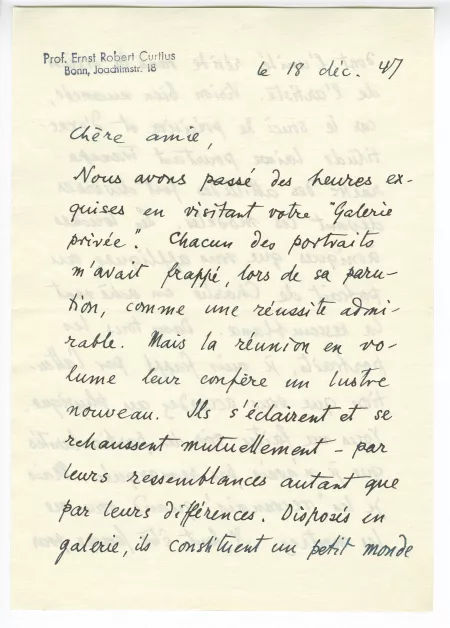 Prof. Ernst Robert Curtius
Bonn, Joachimstr. 18
le 18 déc. 47
Chère amie,
Nous avons passé des heures ex-
quises en visitant votre "Galerie
privée". Chacun des portraits
m'avait frappé, lors de sa paru-
tion, comme une réussite admi-
rable. Mais la réunion en vo-
lume leur confère un lustre
nouveau. Ils s'éclairent et se
rehaussent mutuellement – par
leurs ressemblances autant que
par leurs différences. Disposés en
galerie, ils constituent un petit monde